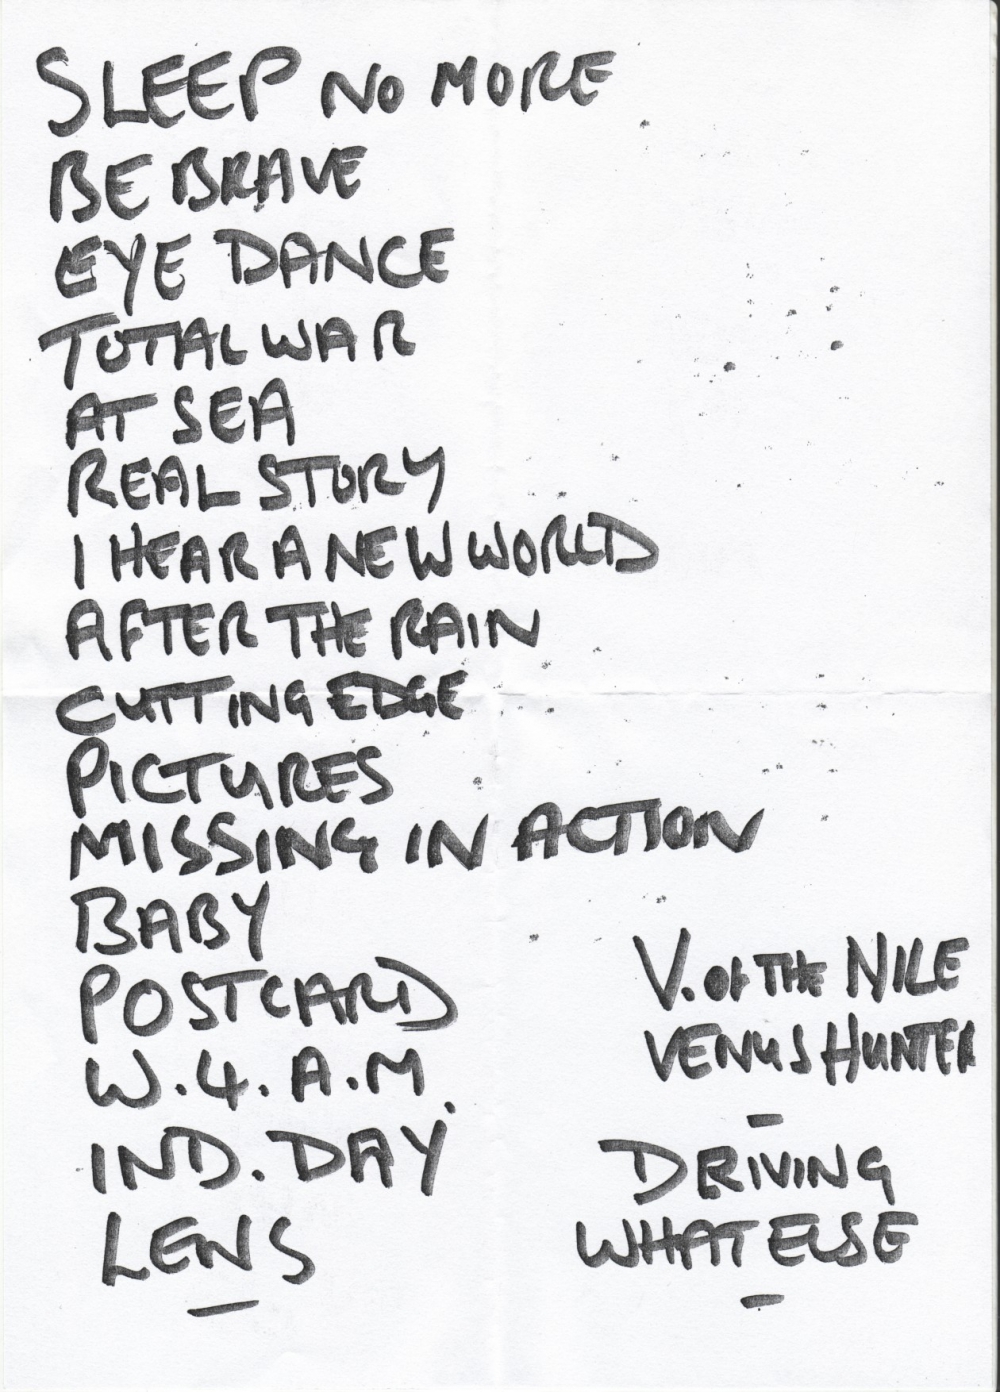 SLEEP NO MORE
BE BRAVE
EYE DANCE
TOTAL WAR
AT SEA
REAL STORY
I HEAR A NEW WORLD
AFTER THE RAIN
CUTTING EDGE
PICTURES
MISSING IN ACTION
BABY
POSTCARD
W.4.A.M.
IND. DAY
LENS
V. OF THE NILE
VENUS HUNTER
DRIVING
WHAT ELSE